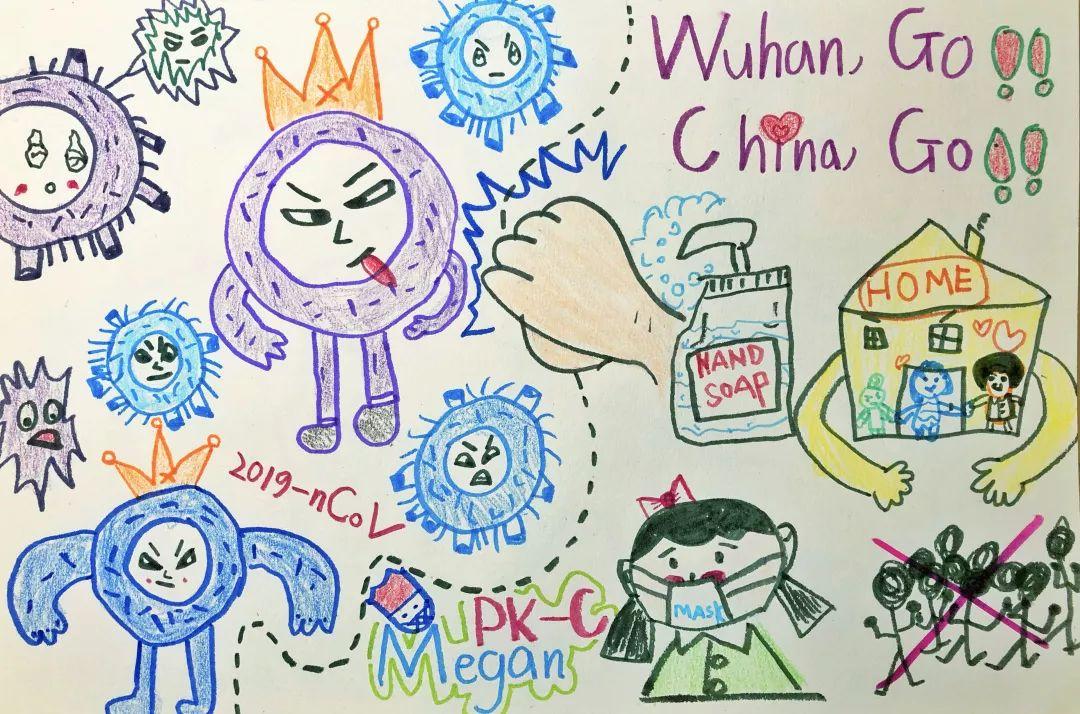 Wuhan, Go!!
China, Go!!
HOME
HAND
SOAP
2019-nCoV
MASK
MuPK-C
Megan